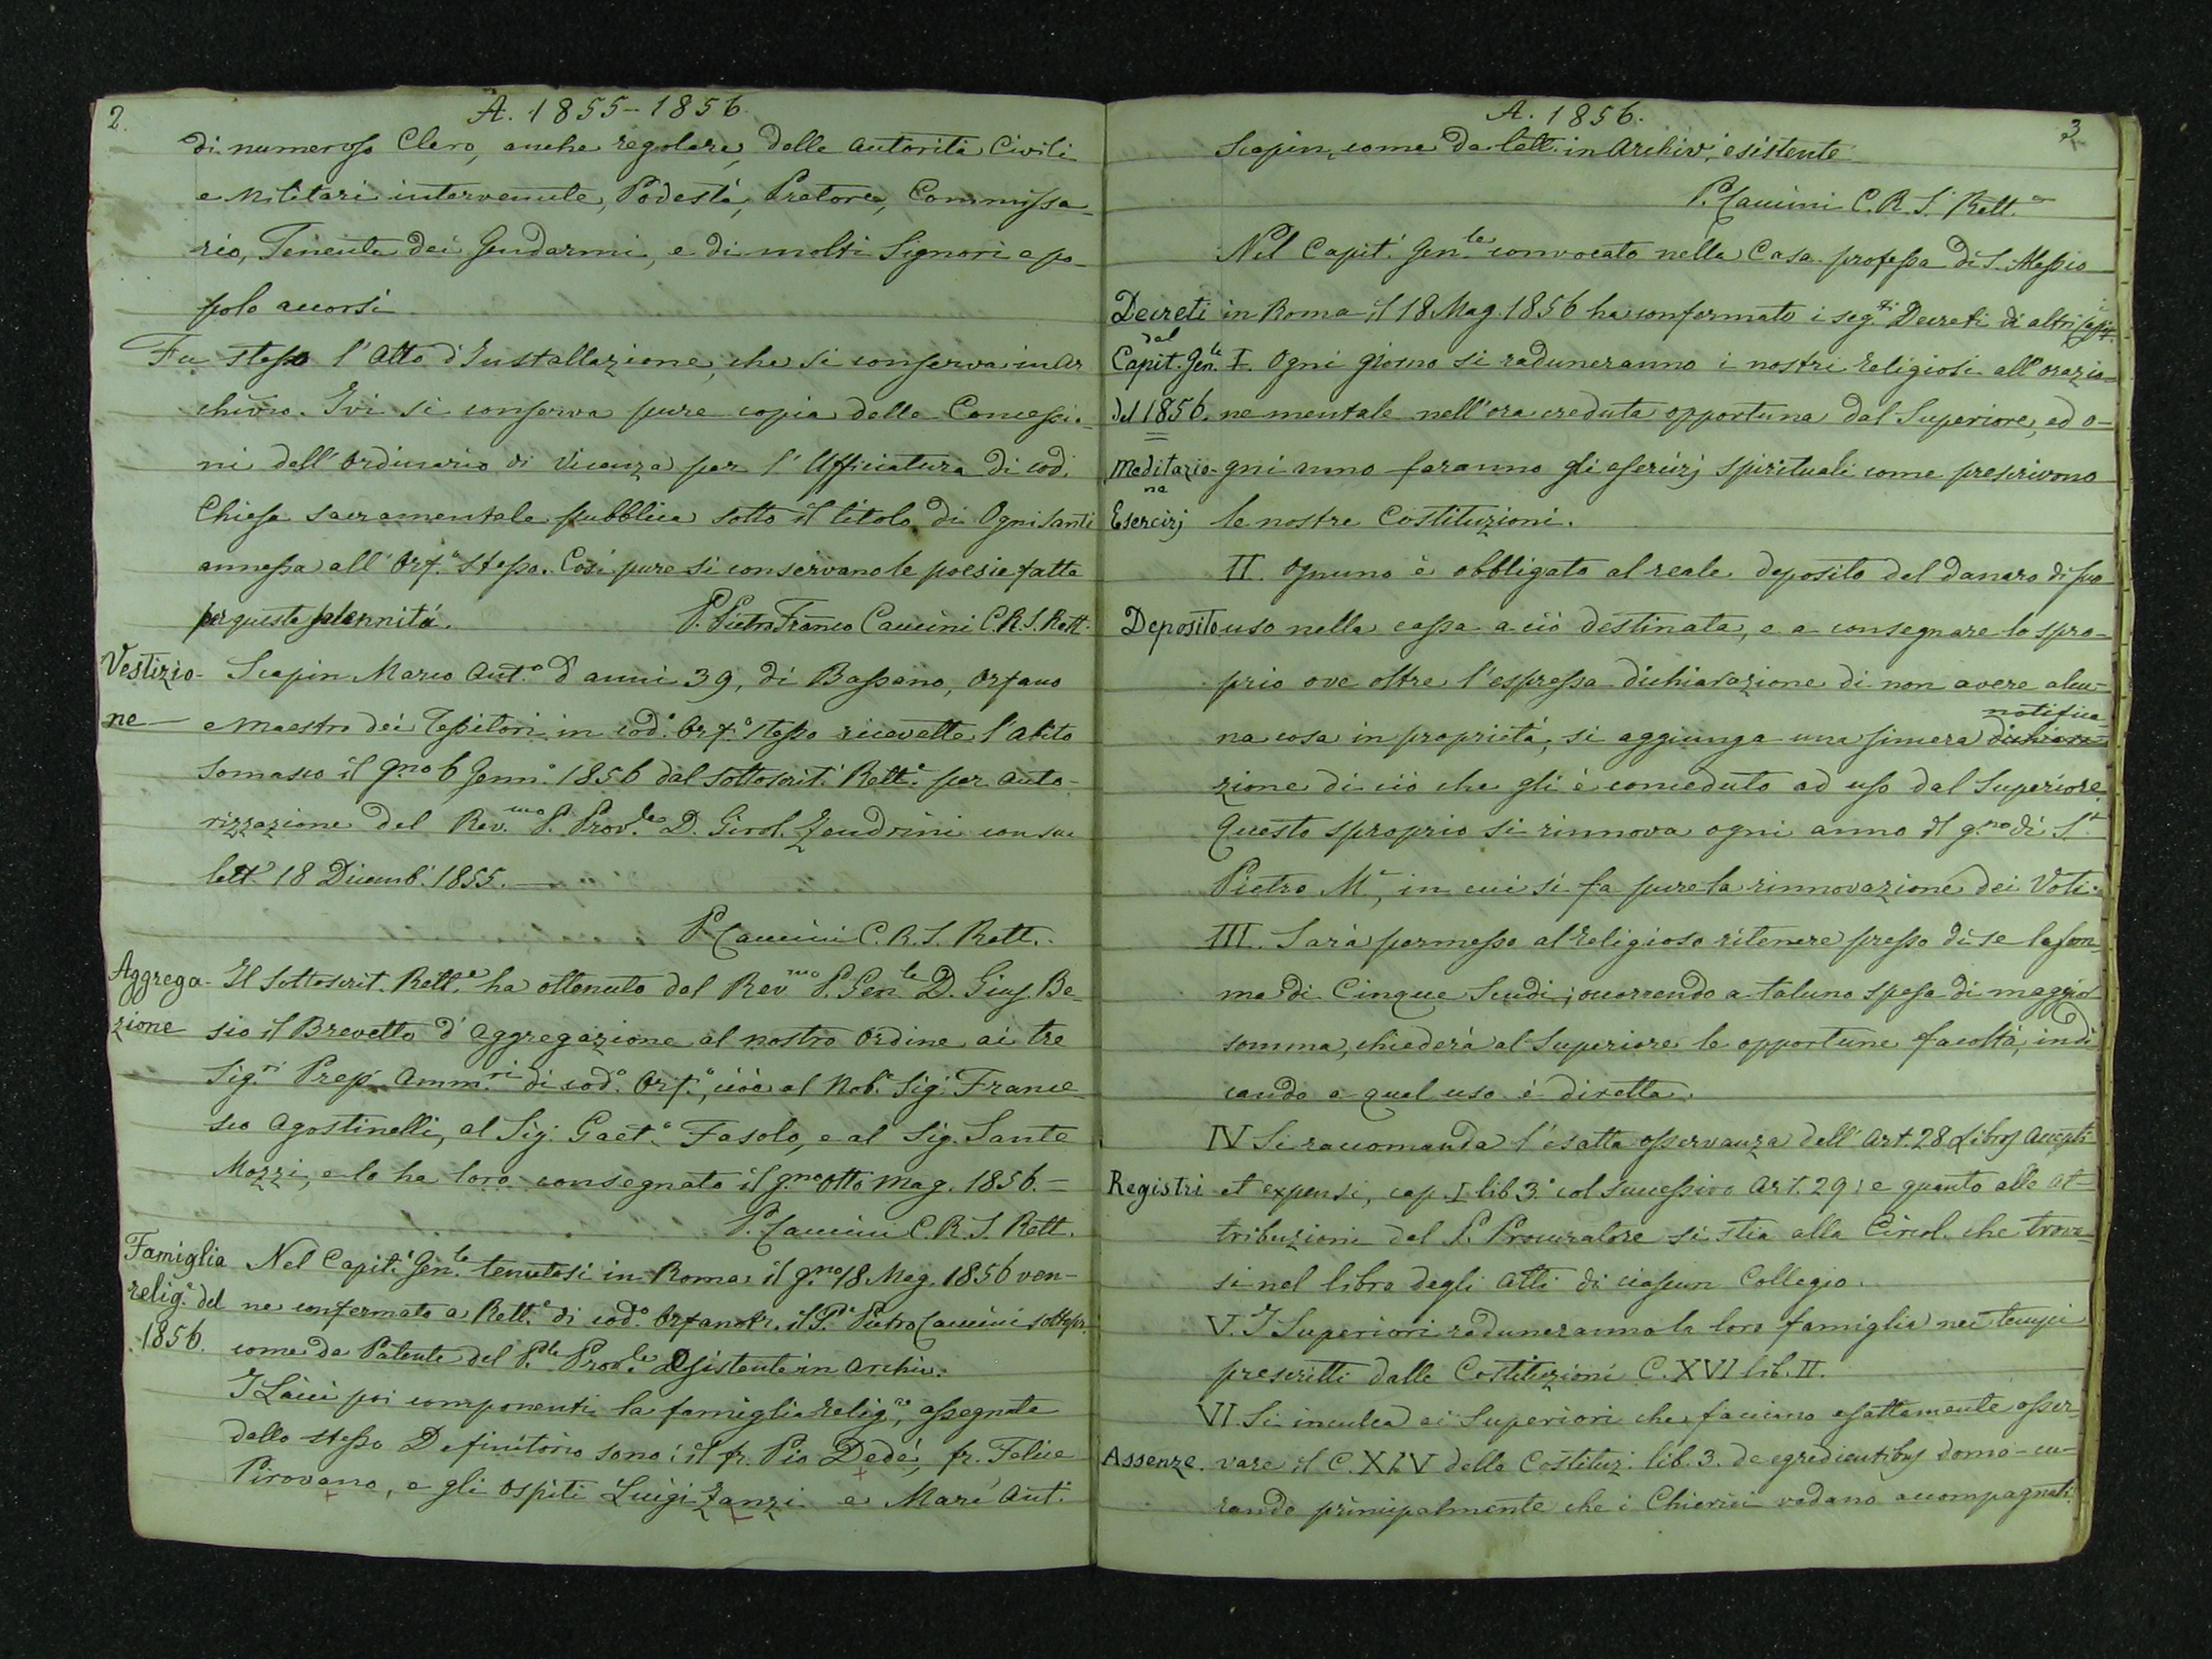 2.
A. 1855-1856.
di numeroso Clero, anche regolare, delle Autorità Civili
e Militari intervenute, Podestà, Pretore, Commissa-
rio, Tenente dei Gendarmi, e di molti Signori e po-
polo accorsi
Fu steso l'Atto d'Installazione, che si conserva in Ar
chivio. Ivi si conserva pure copia delle Concessio-
ni dell'Ordinario di Vicenza per l'Ufficiatura di cod.
Chiesa sacramentale pubblica sotto il titolo di Ogni Santi
annessa all'Orf.o stesso. Così pure si conservano le poesie fatte
per questa solennità. P. Pietro Franco Caccini C.R.S. Rett.
Vestizio- Scapin Marco Ant.o d'anni 39, di Bassano, Orfano
ne e Maestro dei Tessitori in cod.o Orf.o stesso ricevette l'abito
Somasco il g.no 6 Genn.o 1856 dal sottoscrit. Rett.e per auto-
rizzazione del Rev.mo P. Prov.le D. Girol. Zendrini con sua
lett.a 18 Dicemb. 1855.
P. Caccini C.R.S. Rett.
Aggrega- Il sottoscrit. Rett.e ha ottenuto dal Rev.mo P. Gen.le D. Gius. Be-
zione sio il Brevetto d'aggregazione al nostro Ordine ai tre
Sig.ri Prep. Amm.ri di cod.o Orf.o, cioè al Nob. Sig. France
sco Agostinelli, al Sig. Gaet.o Fasolo, e al Sig. Sante
Mozzi, e lo ha loro consegnato il g.no otto Mag. 1856.=
P. Caccini C.R.S. Rett.
Famiglia Nel Capit. Gen.le tenutosi in Roma il g.no 18 Mag. 1856 ven-
relig.a del ne confermato a Rett.e di cod.o Orfanotr. il P. Pietro Caccini sottoscr.
1856. come da Patente del P.le Prov.le esistente in Archiv.
I Laici poi componenti la famiglia relig.a, assegnata
dallo stesso Definitorio sono: il fr. Pio Dedè, fr. Felice
Pirovano, e gli ospiti Luigi Zanzi e Marc'Ant.
A. 1856.
3
Scapin, come da lett. in Archiv. esistente
P. Caccini C.R.S. Rett.e
Nel Capit. Gen.le convocato nella Casa professa di S. Alessio
Decreti in Roma il 18 Mag. 1856 ha confermato i seg.ti Decreti di altri Capit.
dal
Capit. Gen.le I. Ogni giorno si raduneranno i nostri religiosi all'orazio-
del 1856. ne mentale nell'ora creduta opportuna dal Superiore, ed o-
Meditazio- gni anno faranno gli esercizj spirituali come prescrivono
ne
Esercizj le nostre Costituzioni.
II. Ognuno è obbligato al reale deposito del danaro di suo
Deposito uso nella cassa a ciò destinata, e a consegnare lo spro-
prio ove oltre l'espressa dichiarazione di non avere alcu-
notifica-
na cosa in proprietà, si aggiunga una sincera dichiara-
zione di ciò che gli è conceduto ad uso dal Superiore.
Questo sproprio si rinnova ogni anno il g.no di S.
Pietro M.e, in cui si fa pure la rinnovazione dei Voti.
III. Sarà permesso al religioso ritenere presso di se la som-
ma di Cinque Scudi; occorrendo a taluno spesa di maggior
somma, chiederà al Superiore le opportune facoltà, indi
cando a qual uso è diretta.
IV Si raccomanda l'esatta osservanza dell'Art. 28 Libros accepti
Registri et expensi, cap. I lib 3.o col successivo Art. 29: e quanto alle at-
tribuzioni del P. Procuratore si stia alla Circol. che trova-
si nel libro degli Atti di ciascun Collegio.
V. I Superiori raduneranno la loro famiglia nei tempi
prescritti dalle Costituzioni C. XVI lib. II.
VI Si inculca ai Superiori che facciano esattamente osser-
Assenze. vare il C. XIV delle Costituz. lib. 3. de egredientibus domo - cu-
rando principalmente che i Chierici vadano accompagnati.